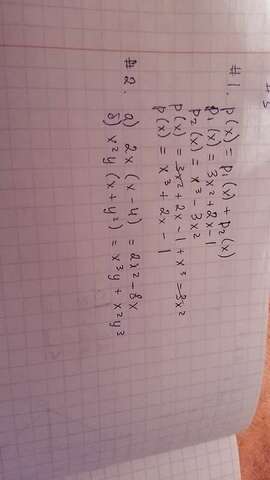 #1. p(x) = p₁(x) + p₂(x)
p₁(x) = 3x² + 2x - 1
p₂(x) = x³ - 3x²
p(x) = 3x² + 2x - 1 + x³ - 3x²
p(x) = x³ + 2x - 1
#2. а) 2x(x - 4) = 2x² - 8x
б) x²y(x + y²) = x³y + x²y³